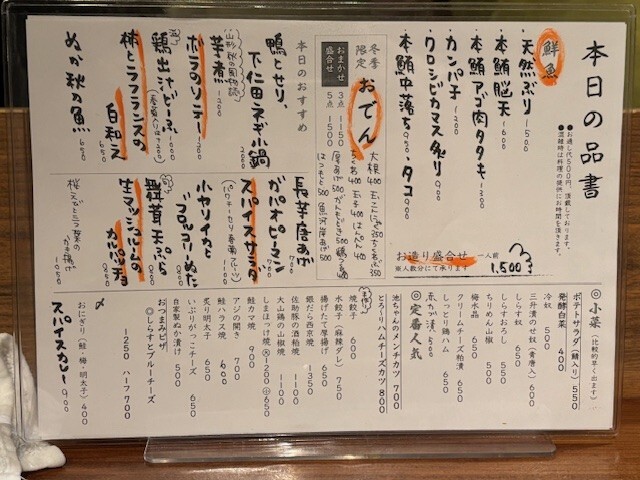 本日の品書
●お通し代500円、頂戴しております。
●混雑時は料理の提供にお時間を頂きます。
鮮魚
天然ぶり 1500
本鮪脳天 1600
本鮪アゴ肉タタキ 1200
カンパチ 1200
クロシビカマス炙り 1000
本鮪中落ち 900、タコ 900
お造り盛合せ 一人前 1,500
※人数分にて承ります
冬季限定 おでん
大根 400
玉子 400
はんペん 400
ちくわ 400
厚あげ 500
はつもと 500
魚河岸あげ 500
おまかせ盛合せ
3点 1150
5点 1500
本日のおすすめ
鴨とせり、
下仁田ネギ小鍋
芋煮 1200
ボラのソテー
鶏出汁どーふ 1000
柿とラフランスの
白和え
ぬか秋刀魚 650
長芋唐あげ 700
ガパオピーマン 700
スパイスサラダ
(パクチー・セリ・春菊・フルーツ)
小ヤリイカと
フロマージュぬた
舞茸天ぷら 800
生マッシュルームの
カルパッチョ
桜えびと三つ葉の
かき揚げ 1050
◎小菜(比較的早く出ます)
ポテトサラダ(鯖入り) 550
発酵白菜 400
冷奴 500
三升漬のせ奴(青唐入) 600
しらす奴 650
しらすおろし 550
ちりめん山椒 500
梅水晶 650
クリームチーズ粕漬 650
しっとり鶏ハム 650
赤かぶ漬 500
◎定番人気
池ちゃんのメンチカツ 700
とろ〜りハムチーズカツ 800
手造り
焼餃子 600
水餃子(麻辣ダレ) 750
揚げたて厚揚げ 650
銀だら西京焼 1350
佐助豚の酒粕焼 1100
大山鶏の山椒焼 1100
しまほっけ焼 大1200 小650
鮭カマ焼 900
アジの開き 700
鮭ハラス焼 600
炙り明太子 650
いぶりがっこチーズ 650
自家製ぬか漬け 500
おつまみピザ
◎しらすとブルーチーズ
1250 ハーフ700
〆
おにぎり(鮭・梅・明太子) 400
スパイスカレー 900